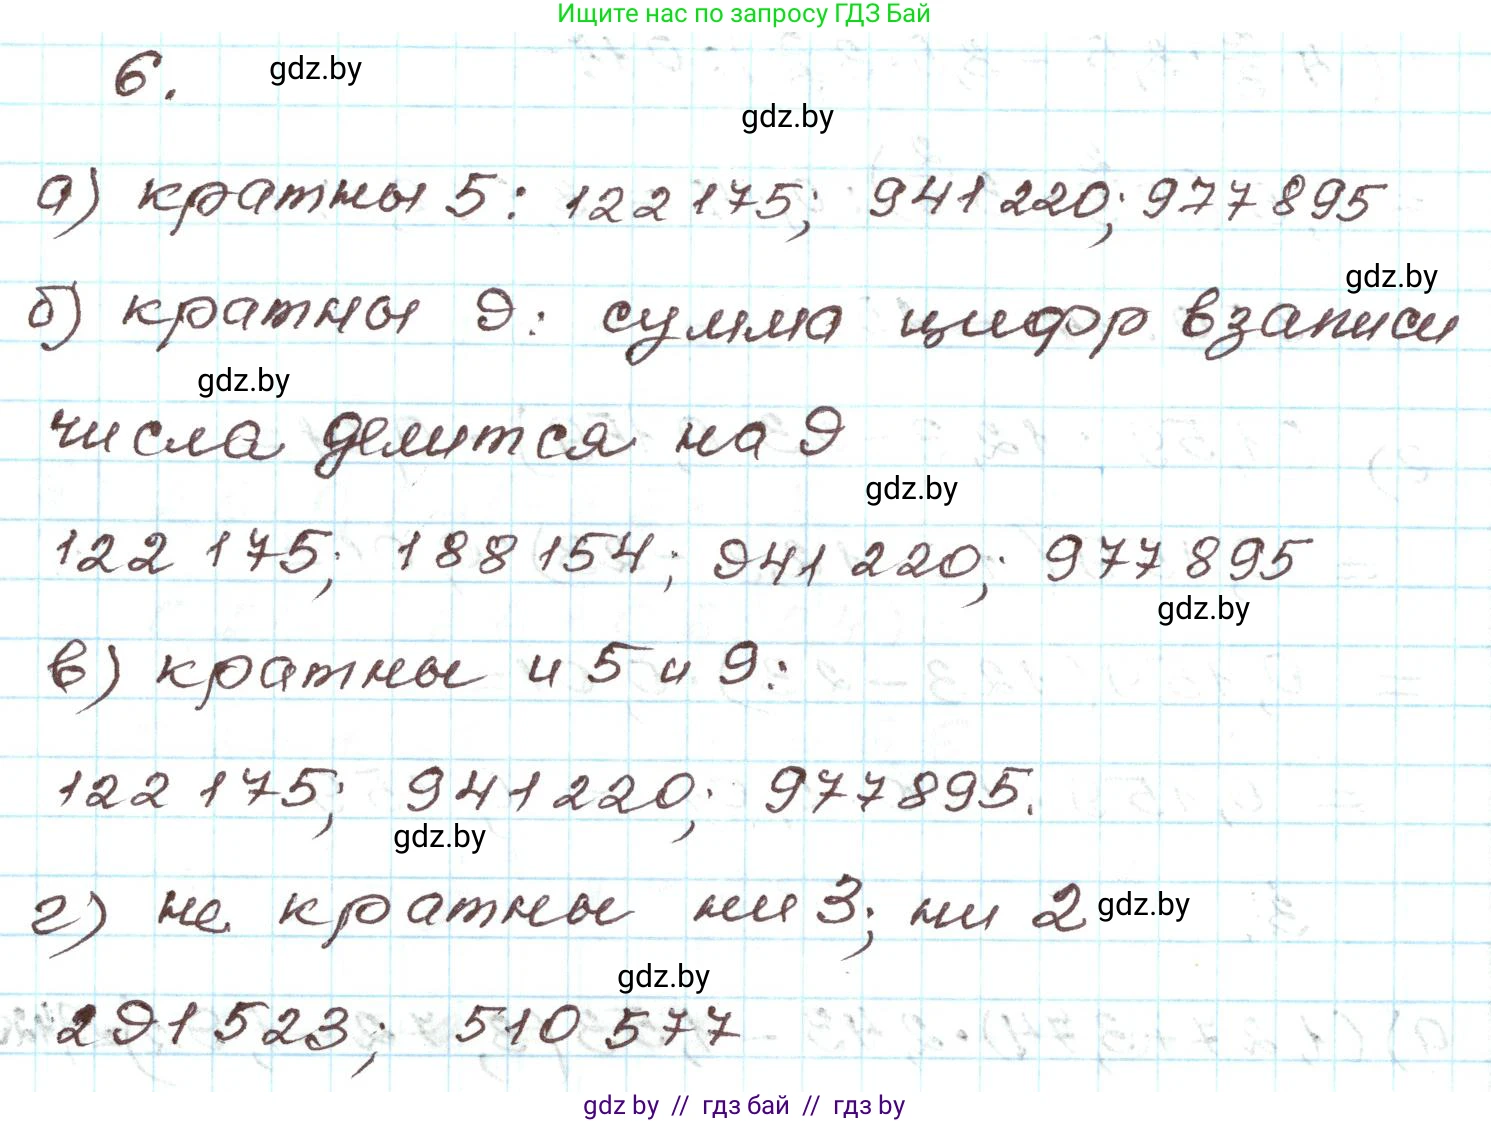 Ищите нас по запросу ГДЗ Бай
6. gdz.by
gdz.by
а) кратны 5: 122 175; 941 220; 977 895
gdz.by
б) кратны 9: сумма цифр в записи
gdz.by
числа делится на 9
gdz.by
122 175; 188 154; 941 220; 977 895
gdz.by
в) кратны и 5 и 9:
122 175; 941 220; 977 895.
gdz.by
г) не кратны ни 3; ни 2 gdz.by
gdz.by
291 523; 510 577
gdz by // гдз бай // гдз by